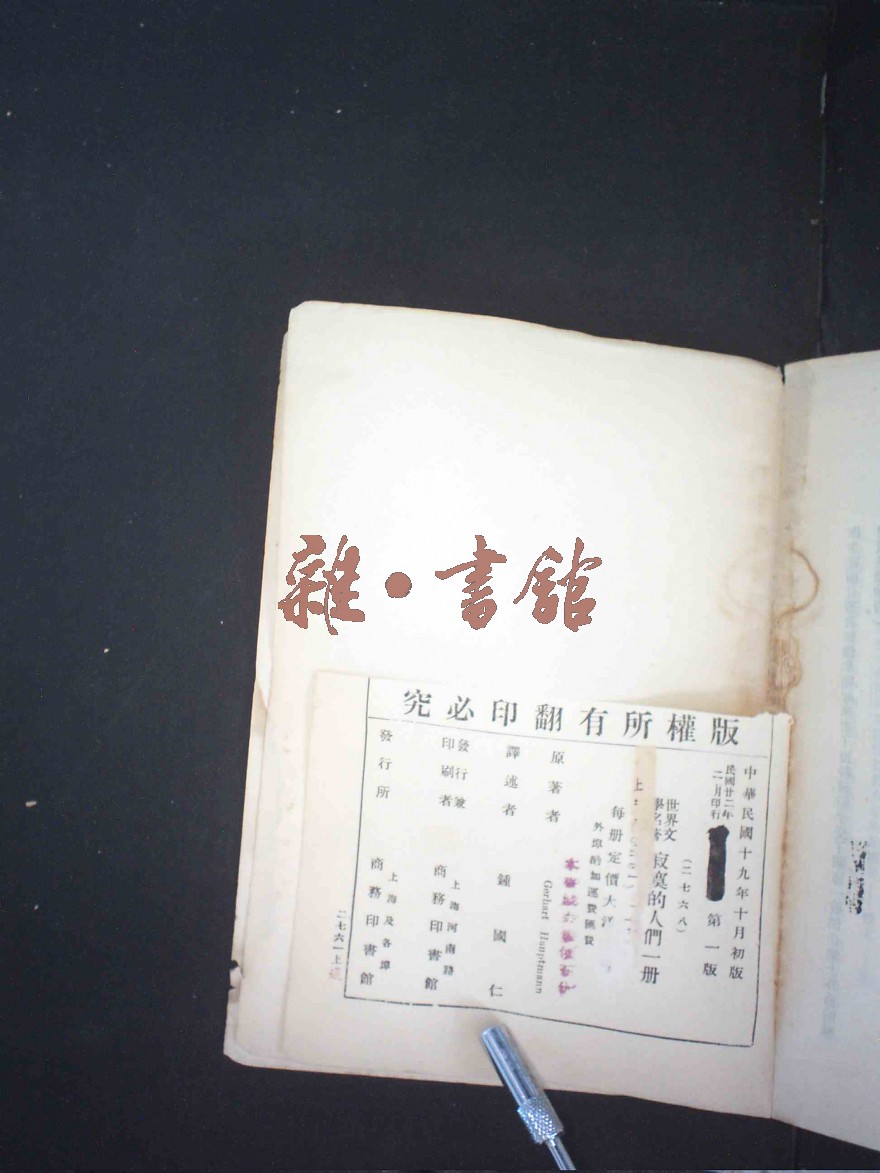 雜•書館
版權所有翻印必究
中華民國十九年十月初版
民國廿二年
二月印行
第一版
(二七六八)
世界文
學名著
寂寞的人們一册
每册定價大洋
外埠酌加運費匯費
原著者
Gerhart Hauptmann
譯述者 鍾國仁
發行兼
印刷者
上海河南路
商務印書館
發行所
上海及各埠
商務印書館
二七六一上